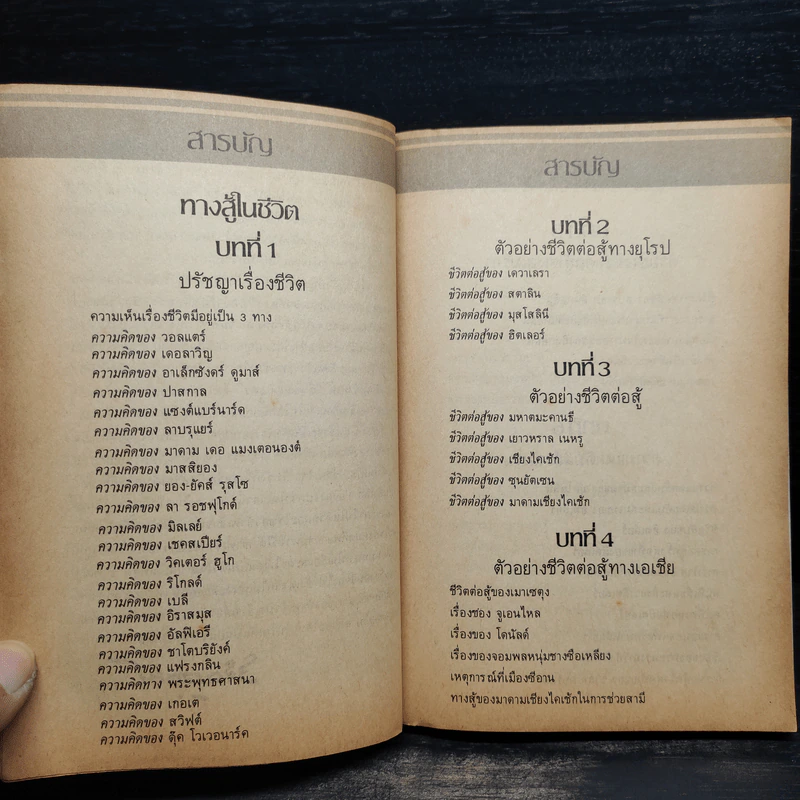 สารบัญ
ทางสู้ในชีวิต
บทที่ 1
ปรัชญาเรื่องชีวิต
ความเห็นเรื่องชีวิตมีอยู่เป็น 3 ทาง
ความคิดของ วอลแตร์
ความคิดของ เดอลาวิญ
ความคิดของ อาเล็กซังดร์ ดูมาส์
ความคิดของ ปาสกาล
ความคิดของ แซงต์แบร์นาร์ด
ความคิดของ ลาบรุแยร์
ความคิดของ มาดาม เดอ แมงเตอนองต์
ความคิดของ มาสสิยอง
ความคิดของ ยอง-ยัคส์ รุสโซ
ความคิดของ ลา รอชฟุโกต์
ความคิดของ มิลเลย์
ความคิดของ เชคสเปียร์
ความคิดของ วิคเตอร์ ฮูโก
ความคิดของ ริโกลด์
ความคิดของ เบลี
ความคิดของ อิราสมุส
ความคิดของ อัลฟิเอรี
ความคิดของ ชาโตบริยังค์
ความคิดของ แฟรงกลิน
ความคิดทาง พระพุทธศาสนา
ความคิดของ เกอเต
ความคิดของ สวิฟต์
ความคิดของ ดุ๊ค โวเวอนาร์ค
สารบัญ
บทที่ 2
ตัวอย่างชีวิตต่อสู้ทางยุโรป
ชีวิตต่อสู้ของ เดวาเลรา
ชีวิตต่อสู้ของ สตาลิน
ชีวิตต่อสู้ของ มุสโสลินี
ชีวิตต่อสู้ของ ฮิตเลอร์
บทที่ 3
ตัวอย่างชีวิตต่อสู้
ชีวิตต่อสู้ของ มหาตมะคานธี
ชีวิตต่อสู้ของ เยาวหราล เนหรู
ชีวิตต่อสู้ของ เชียงไคเช็ก
ชีวิตต่อสู้ของ ซุนยัตเซน
ชีวิตต่อสู้ของ มาดามเชียงไคเช็ก
บทที่ 4
ตัวอย่างชีวิตต่อสู้ทางเอเชีย
ชีวิตต่อสู้ของเมาเซตุง
เรื่องของ จูเอนไหล
เรื่องของ โดนัลด์
เรื่องของจอมพลหนุ่มชางซือเหลียง
เหตุการณ์ที่เมืองซีอาน
ทางสู้ของมาดามเชียงไคเช็กในการช่วยสามี